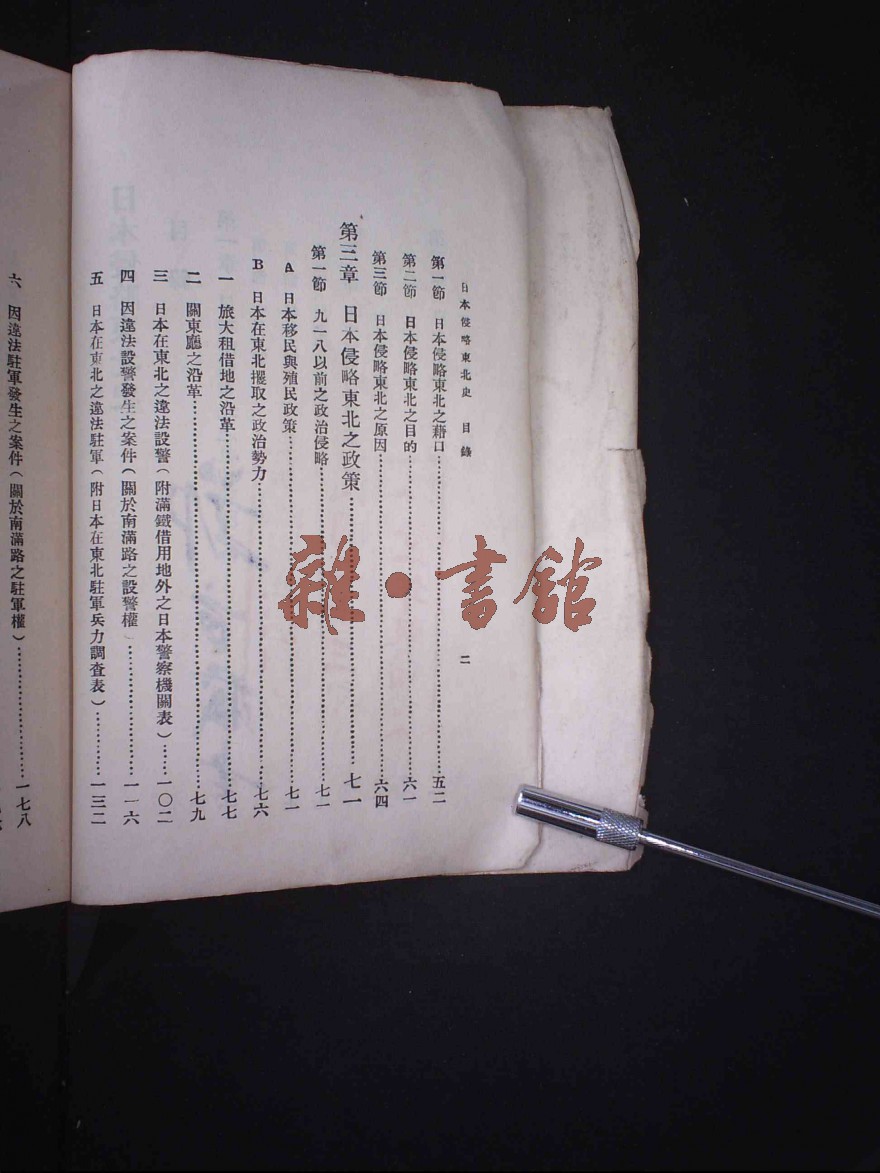 日本侵略東北史 目錄 二
第一節 日本侵略東北之藉口……五二
第二節 日本侵略東北之目的……六一
第三節 日本侵略東北之原因……六四
第三章 日本侵略東北之政策……七一
第一節 九一八以前之政治侵略……七一
A 日本移民與殖民政策……七一
B 日本在東北攫取之政治勢力……七六
一 旅大租借地之沿革……七七
二 關東廳之沿革……七九
三 日本在東北之違法設警(附滿鐵借用地外之日本警察機關表)……一〇二
四 因違法設警發生之案件(關於南滿路之設警權)……一一六
五 日本在東北之違法駐軍(附日本在東北駐軍兵力調查表)……一三二
六 因違法駐軍發生之案件(關於南滿路之駐軍權)……一七八
雜·書館